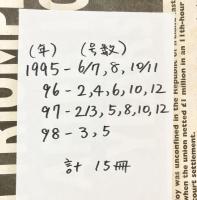 (年) (号数)
1995 - 6/7, 8, 10/11
96 - 2, 4, 6, 10, 12
97 - 2/3, 5, 8, 10, 12
98 - 3, 5
計 15冊
TRIUMPH
was unconfined in the
when the union netted £1 million in an 11th-hour
court settlement.